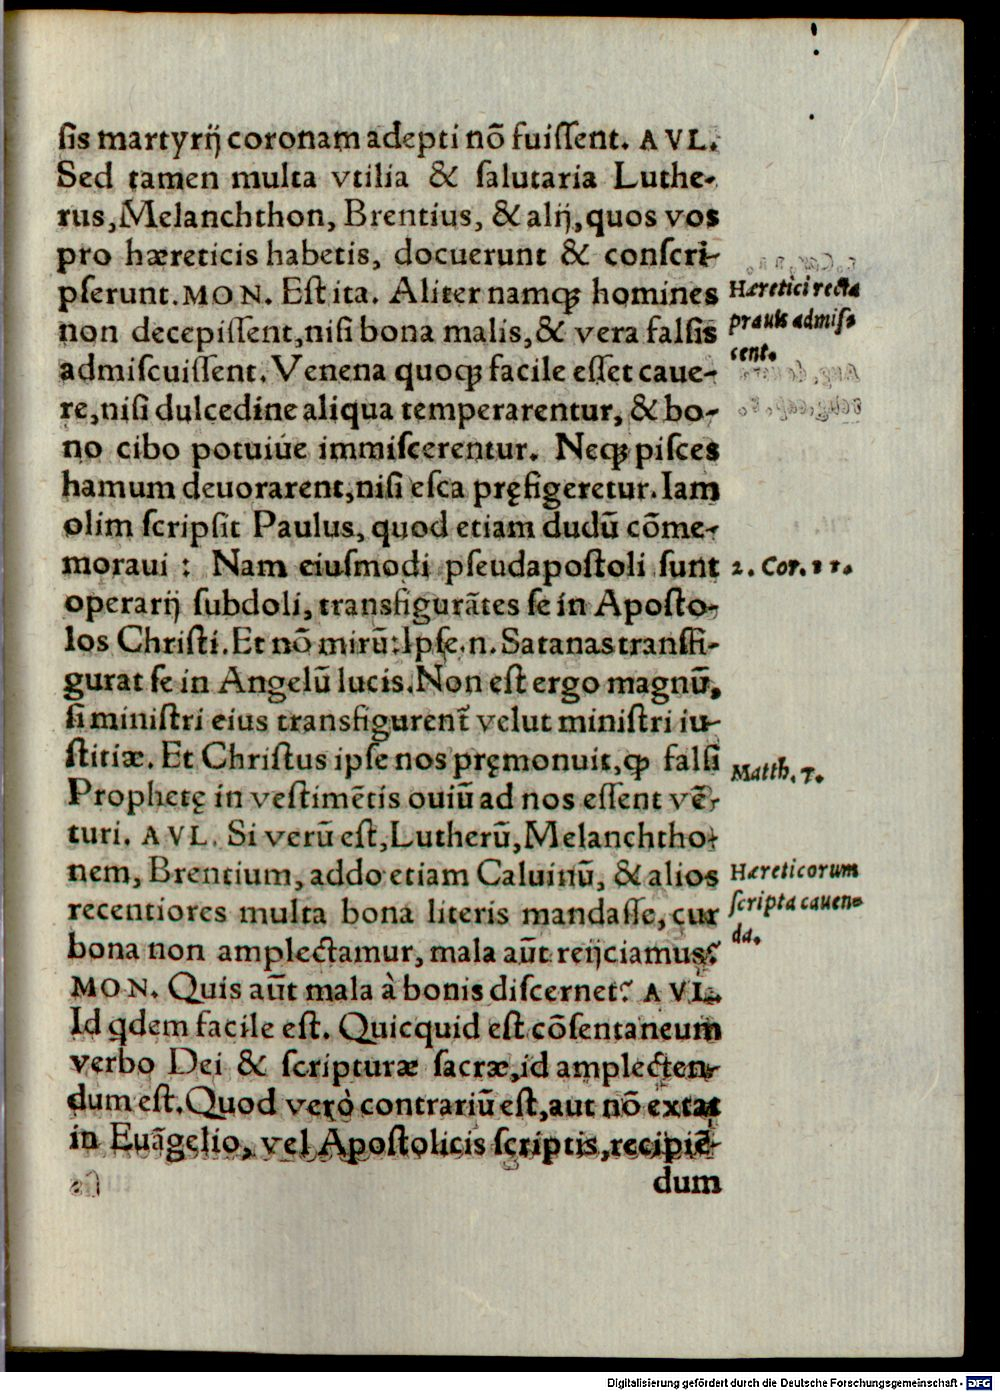 ſis martyrij coronam adepti nõ fuiſſent. AVL.
Sed tamen multa vtilia & ſalutaria Luthe-
rus, Melanchthon, Brentius, & alij, quos vos
pro hæreticis habetis, docuerunt & conſcri-
pſerunt. MON. Eſt ita. Aliter namqꝫ homines
Hæretici recta
non decepiſſent, niſi bona malis, & vera falſis
prauis admiſ-
admiſcuiſſent. Venena quoqꝫ facile eſſet caue-
cent.
re, niſi dulcedine aliqua temperarentur, & bo-
no cibo potuiúe immiſcerentur. Neqꝫ piſces
hamum deuorarent, niſi eſca pręfigeretur. Iam
olim ſcripſit Paulus, quod etiam dudũ cõme-
moraui : Nam eiuſmodi pſeudapoſtoli ſunt
2. Cor. 11.
operarij ſubdoli, transfigurãtes ſe in Apoſto-
los Chriſti. Et nõ mirũ: Ipſe.n. Satanas transfi-
gurat ſe in Angelũ lucis. Non eſt ergo magnũ,
ſi miniſtri eius transfigurent̃ velut miniſtri iu-
ſtitiæ. Et Chriſtus ipſe nos pręmonuit, ꝙ falſi
Matth. 7.
Prophetę in veſtimẽtis ouiũ ad nos eſſent vẽ-
turi. AVL. Si verũ eſt, Lutherũ, Melanchtho-
nem, Brentium, addo etiam Caluinũ, & alios
Hæreticorum
recentiores multa bona literis mandaſſe, cur
ſcripta cauen-
bona non amplectamur, mala aũt reijciamus?
da.
MON. Quis aũt mala à bonis diſcernet? AVL.
Id qdem facile eſt. Quicquid eſt cõſentaneum
verbo Dei & ſcripturæ ſacræ, id amplecten-
dum eſt. Quod verò contrariũ eſt, aut nõ extat
in Euãgelio, vel Apoſtolicis ſcriptis, recipiẽ-
dum
Digitalisierung gefördert durch die Deutsche Forschungsgemeinschaft - DFG